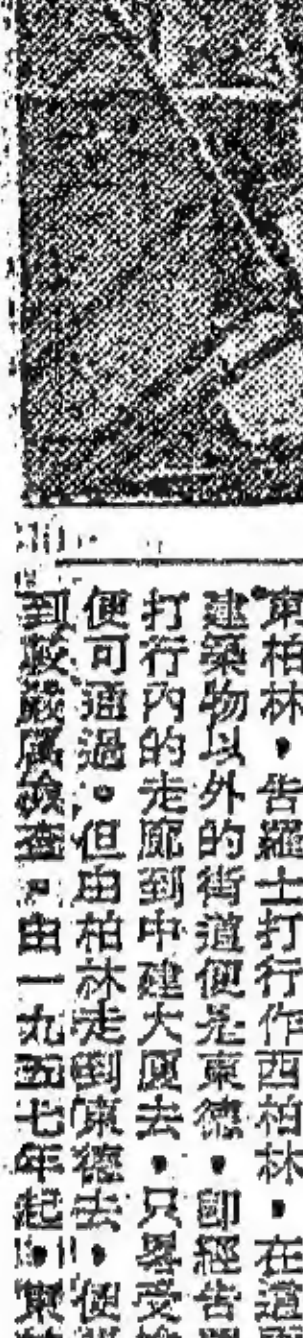 東柏林，告羅士打行作西柏林，在這
建築物以外的街道便是東德，即經告
打行內的走廊到中建大厦去，只畧受
便可通過。但由柏林走到東德去，便
到嚴厲檢查。由一九五七年起，東